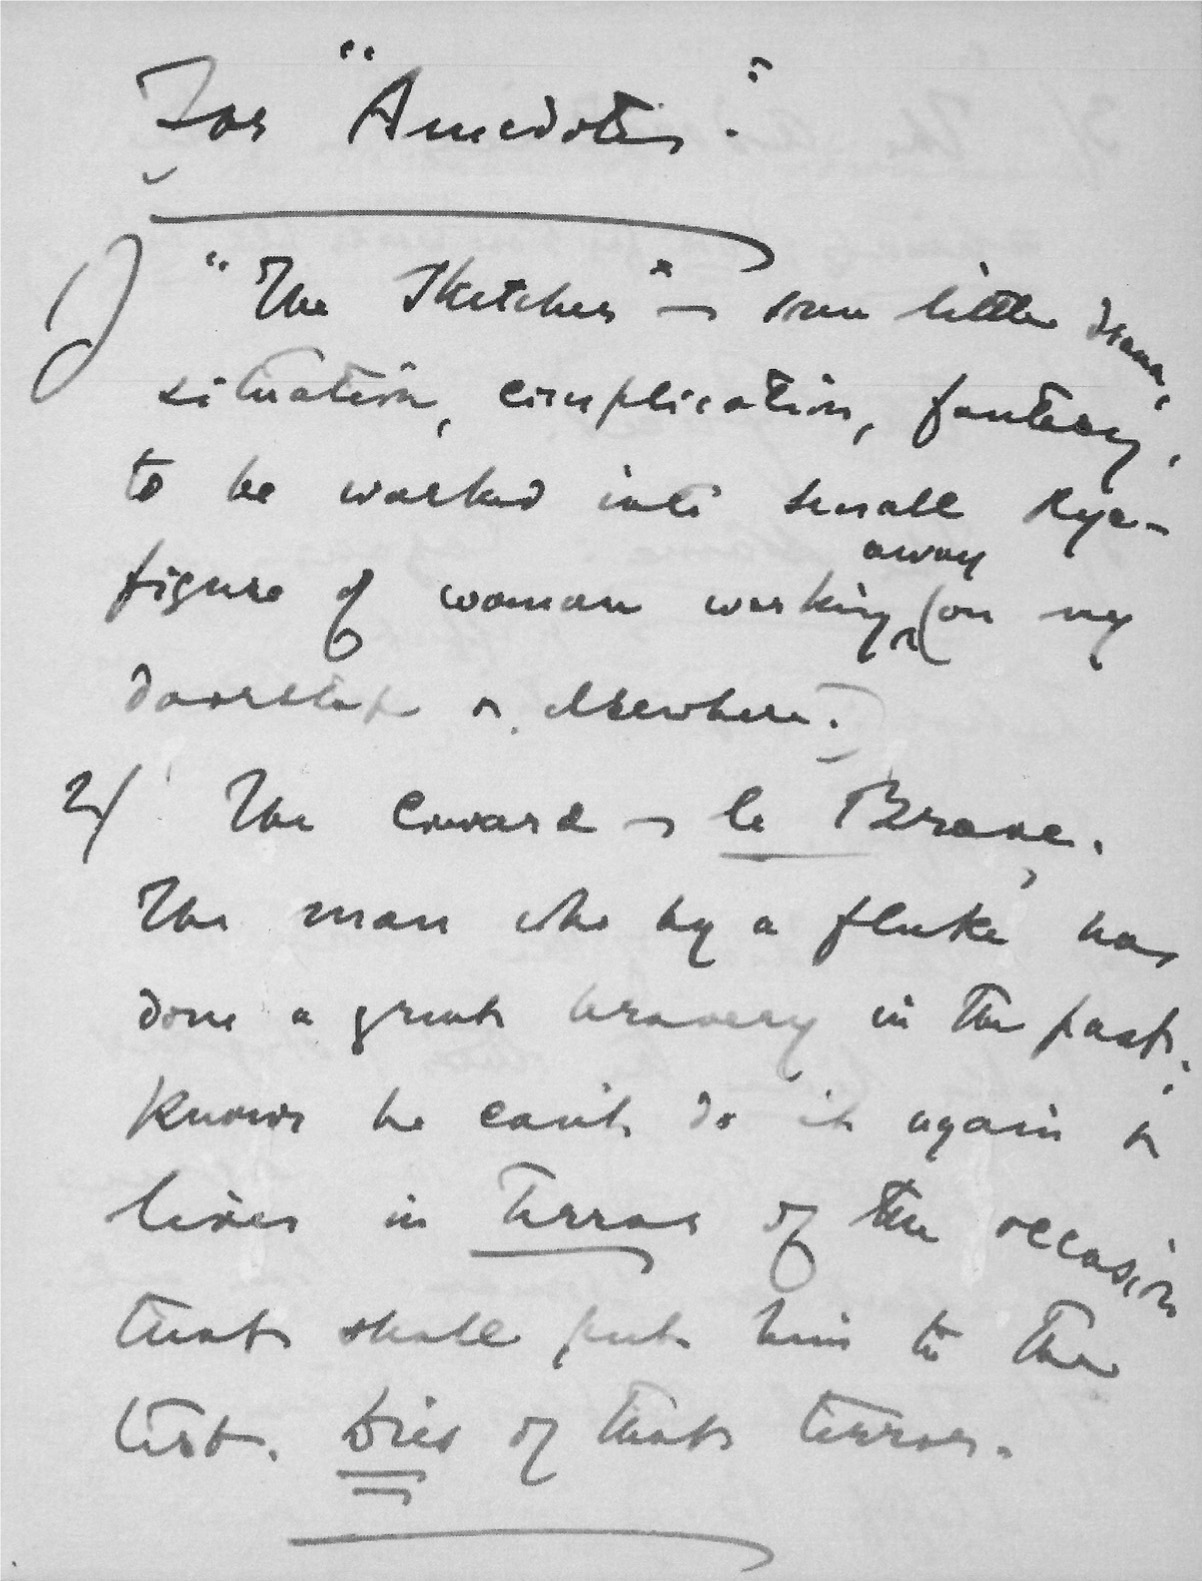 For "Anecdotes."
1) "The Sketcher" — some little drama,
situation, complication, fantasy,
to be worked into small Rye-
figure of woman working away (on my
doorstep & elsewhere.)
2) The Coward — le Brave.
The man who by a fluke has
done a great bravery in the past;
knows he can't do it again &
lives in terror of the occasion
that shall put him to the
test. Dies of that terror.